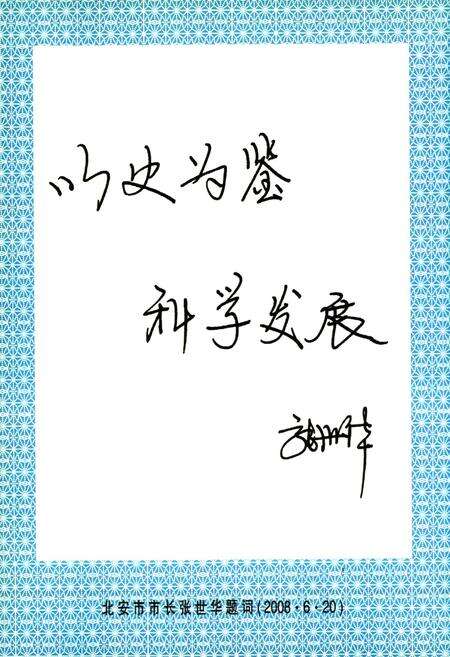 以史为鉴
科学发展
张世华
北安市市长张世华题词(2008·6·20)